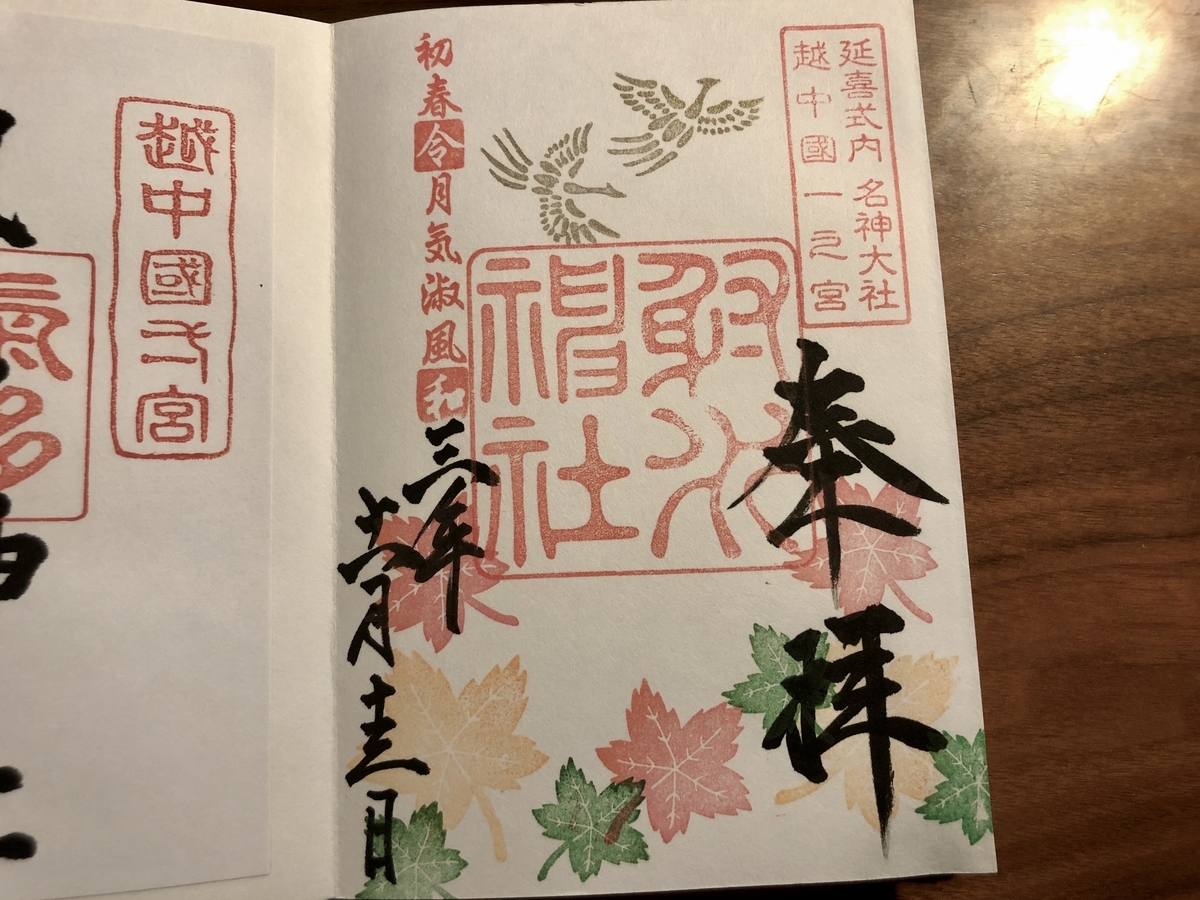 延喜式内 名神大社
越中國一之宮
奉拝
射水
神社
初春令月気淑風和
三年
十一月十三日
越中國宮
氣多